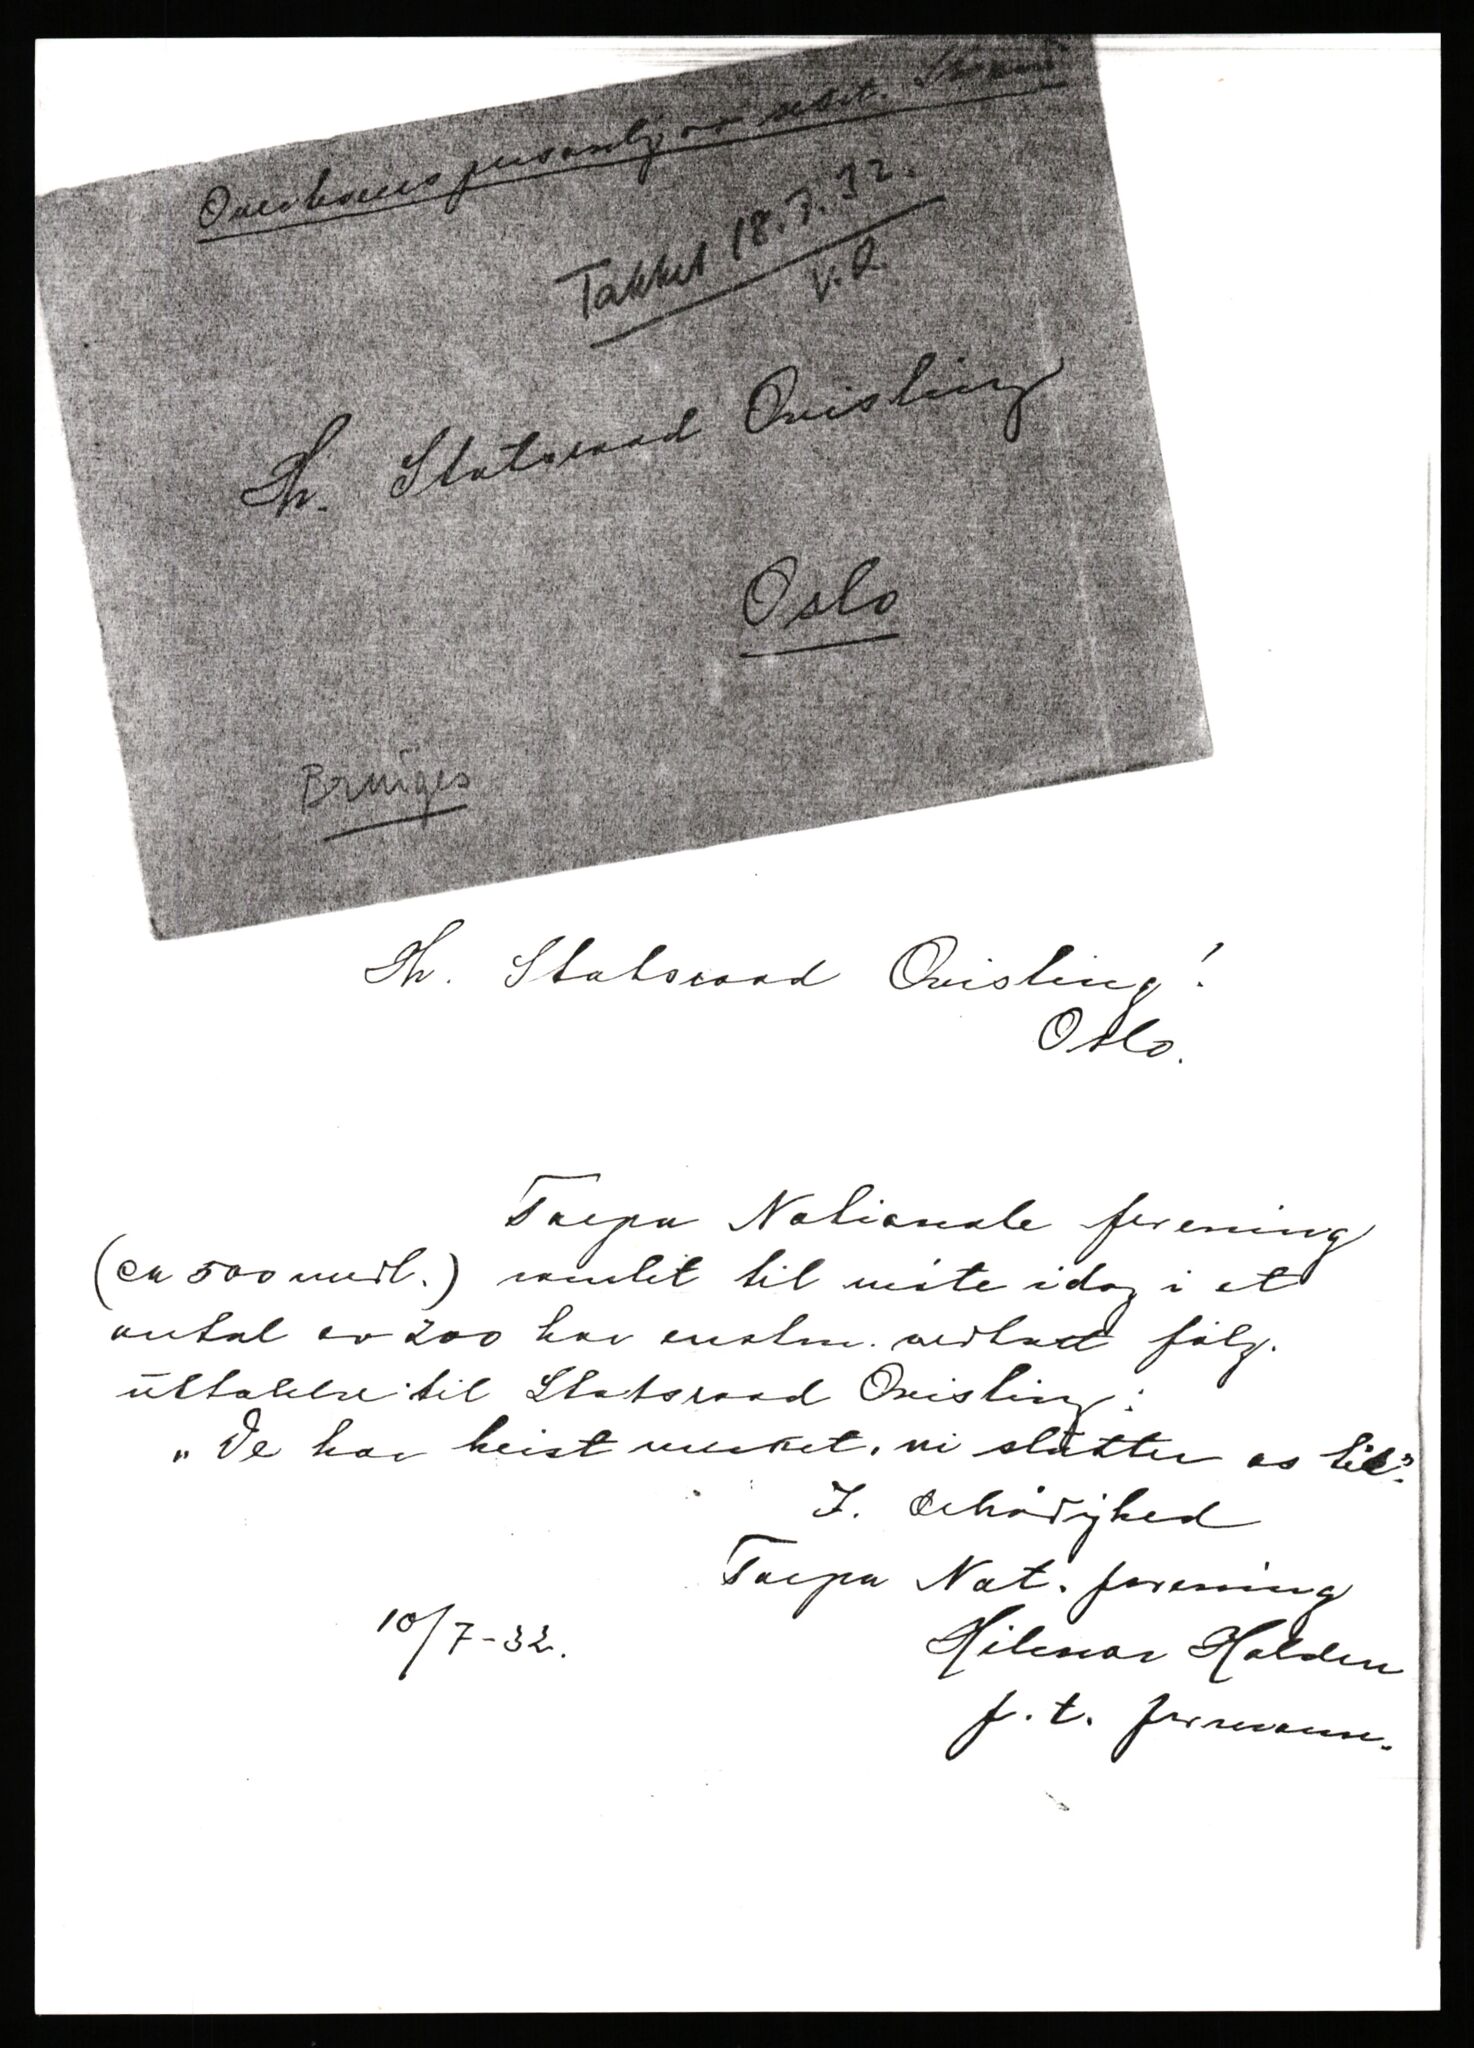 Overleveres personlig av sekr.
Takket 18.7.32.
V. Q.
Hr. Statsraad Quisling
Oslo
Bruges
Hr. Statsraad Quisling!
Oslo.
Torpa Nationale forening
(ca 500 medl.) samlet til møte idag i et
antal av 200 har enstm. vedtatt følg.
uttalelse til Statsraad Quisling:
„De har heist merket, vi slutter os til".
I. Ærbødighed
Torpa Nat. forening
Hilmar Halden
f. t. formann.
10/7-32.